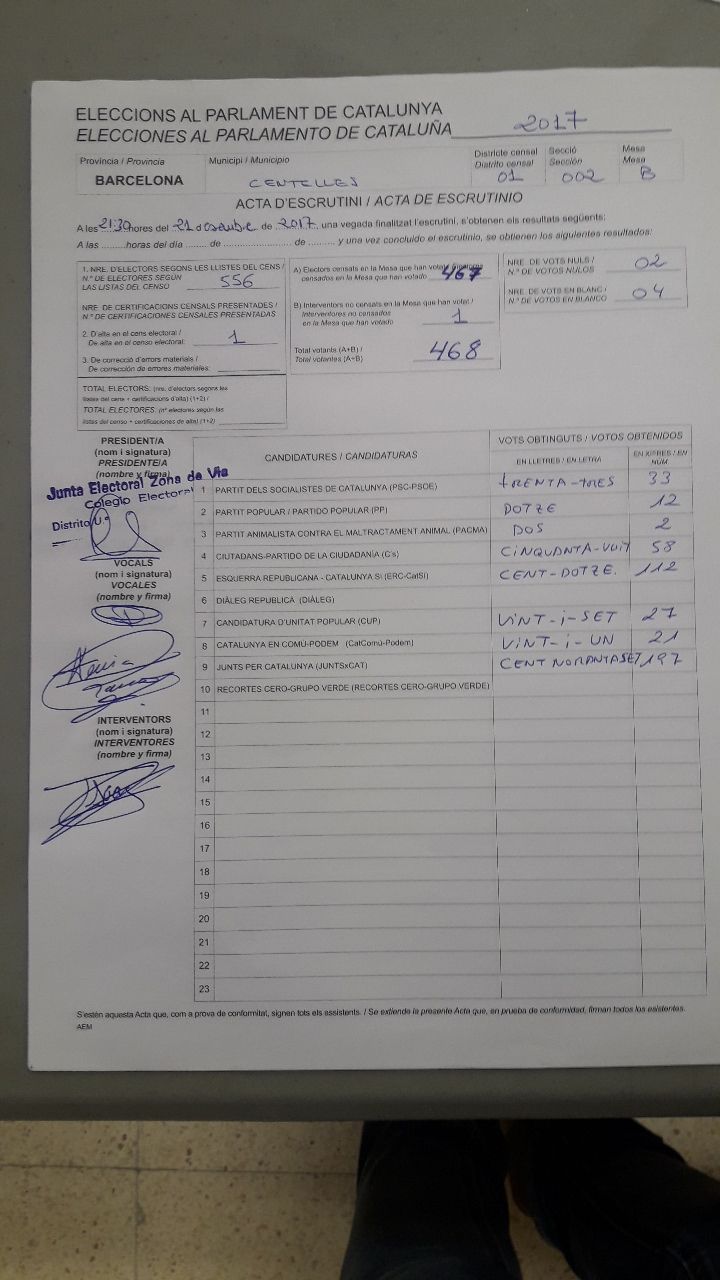 ELECCIONS AL PARLAMENT DE CATALUNYA
ELECCIONES AL PARLAMENTO DE CATALUÑA 2017
Provincia / Provincia
BARCELONA
Municipi / Municipio
CENTELLES
Districte censal
Distrito censal
01
Secció
Sección
002
Mesa
Mesa
B
ACTA D'ESCRUTINI / ACTA DE ESCRUTINIO
A les 21:30 hores del 21 de de 2017, una vegada finalitzat l'escrutini, s'obtenen els resultats següents:
A las ......... horas del día ....... de ........................ de ........, y una vez concluido el escrutinio, se obtienen los siguientes resultados:
1. NRE. D'ELECTORS SEGONS LES LLISTES DEL CENS /
N.º DE ELECTORES SEGÚN
LAS LISTAS DEL CENSO
556
NRE. DE CERTIFICACIONS CENSALS PRESENTADES /
N.º DE CERTIFICACIONES CENSALES PRESENTADAS
2. D'alta en el cens electoral /
De alta en el censo electoral: 1
3. De correcció d'errors materials /
De corrección de errores materiales:
TOTAL ELECTORS: (nre. d'electors segons les
llistes del cens + certificacions d'alta) (1+2) /
TOTAL ELECTORES: (nº electores según las
listas del censo + certificaciones de alta) (1+2)
A) Electors censats en la Mesa que han votat /
censados en la Mesa que han votado 467
B) Interventors no censats en la Mesa que han votat /
Interventores no censados
en la Mesa que han votado 1
Total votants (A+B) /
Total votantes (A+B) 468
NRE. DE VOTS NULS /
N.º DE VOTOS NULOS 02
NRE. DE VOTS EN BLANC /
N.º DE VOTOS EN BLANCO 04
PRESIDENT/A
(nom i signatura)
PRESIDENTE/A
(nombre y firma)
Junta Electoral Zona de Vic
Colegio Electoral
Distrito
VOCALS
(nom i signatura)
VOCALES
(nombre y firma)
INTERVENTORS
(nom i signatura)
INTERVENTORES
(nombre y firma)
CANDIDATURES / CANDIDATURAS
VOTS OBTINGUTS / VOTOS OBTENIDOS
EN LLETRES / EN LETRA
EN XIFRES / EN NÚM.
1 PARTIT DELS SOCIALISTES DE CATALUNYA (PSC-PSOE) tRENTA-TRES 33
2 PARTIT POPULAR / PARTIDO POPULAR (PP) DOTZE 12
3 PARTIT ANIMALISTA CONTRA EL MALTRACTAMENT ANIMAL (PACMA) DOS 2
4 CIUTADANS-PARTIDO DE LA CIUDADANÍA (C's) CINQUANTA-VUIT 58
5 ESQUERRA REPUBLICANA - CATALUNYA SÍ (ERC-CatSí) CENT-DOTZE. 112
6 DIÀLEG REPUBLICÀ (DIÀLEG)
7 CANDIDATURA D'UNITAT POPULAR (CUP) VINT-i-SET 27
8 CATALUNYA EN COMÚ-PODEM (CatComú-Podem) VINT-i-UN 21
9 JUNTS PER CATALUNYA (JUNTSxCAT) CENT NORANTASET 197
10 RECORTES CERO-GRUPO VERDE (RECORTES CERO-GRUPO VERDE)
11
12
13
14
15
16
17
18
19
20
21
22
23
S'estén aquesta Acta que, com a prova de conformitat, signen tots els assistents. / Se extiende la presente Acta que, en prueba de conformidad, firman todos los asistentes.
AEM